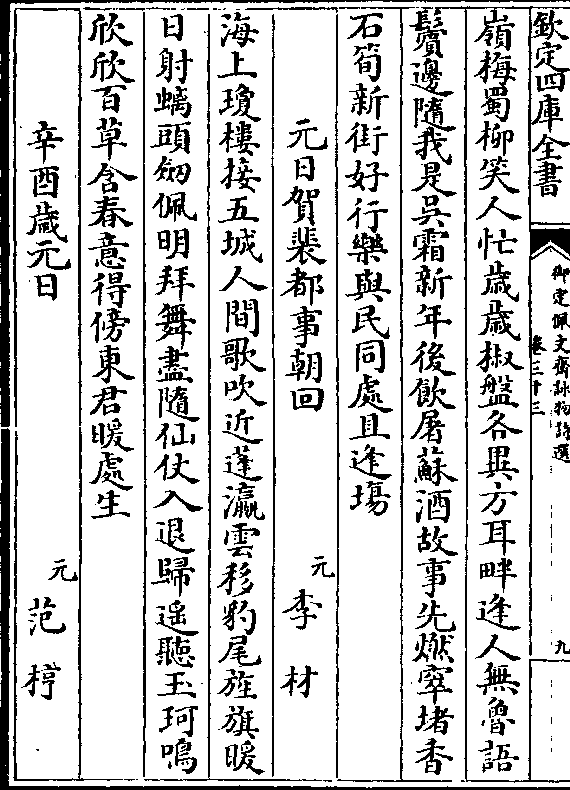 欽定四庫全書
御定佩文齋詠物詩選
卷三十三
九
嶺梅蜀柳笑人忙歲歲椒盤各異方耳畔逢人無魯語
鬢邊隨我是吳霜新年後飲屠蘇酒故事先燃窣堵香
石筍新街好行樂與民同處且逢場
元日賀裴都事朝回
元李材
海上瓊樓接五城人間歌吹近蓬瀛雲移豹尾旌旗暖
日射螭頭劒佩明拜舞盡隨仙仗入退歸遥聽玉珂鳴
欣欣百草含春意得傍東君暖處生
辛酉歲元日
元范梈